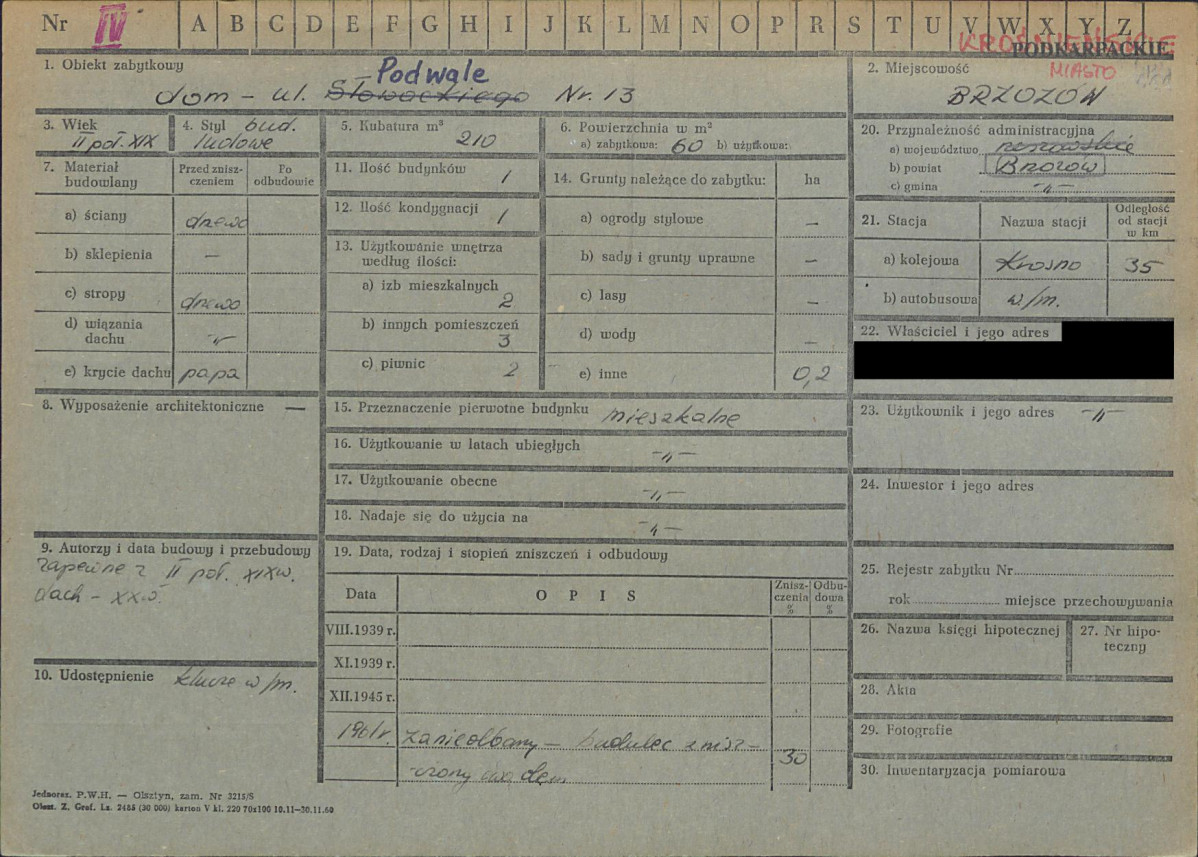 Nr IV A B C D E F G H I J K L M N O P R S T U V W X Y Z
KROŚNIEŃSKIE
PODKARPACKIE
MIASTO
1. Obiekt zabytkowy
Podwale
dom – ul. Słowackiego Nr. 13
2. Miejscowość
BRZOZÓW
3. Wiek
II poł. XIX
4. Styl bud.
ludowe
5. Kubatura m³
210
6. Powierzchnia w m²
a) zabytkowa: 60 b) użytkowa:
7. Materiał budowlany
Przed zniszczeniem
Po odbudowie
a) ściany drewo
b) sklepienia —
c) stropy drewo
d) wiązania dachu –„–
e) krycie dachu papa
8. Wyposażenie architektoniczne —
9. Autorzy i data budowy i przebudowy
zapewne z II poł. XIXw.
dach – XXw.
10. Udostępnienie klucze w/m.
11. Ilość budynków 1
12. Ilość kondygnacji 1
13. Użytkowanie wnętrza według ilości:
a) izb mieszkalnych 2
b) innych pomieszczeń 3
c) piwnic 2
14. Grunty należące do zabytku: ha
a) ogrody stylowe —
b) sady i grunty uprawne —
c) lasy —
d) wody —
e) inne 0,2
15. Przeznaczenie pierwotne budynku mieszkalne
16. Użytkowanie w latach ubiegłych –„–
17. Użytkowanie obecne –„–
18. Nadaje się do użycia na –„–
19. Data, rodzaj i stopień zniszczeń i odbudowy
Data O P I S Zniszczenia % Odbudowa %
VIII.1939 r.
XI.1939 r.
XII.1945 r.
1961r. zaniedbany – budulec znisz-
czony 30
20. Przynależność administracyjna
a) województwo rzeszowskie
b) powiat Brzozów
c) gmina –„–
21. Stacja Nazwa stacji Odległość od stacji w km
a) kolejowa Krosno 35
b) autobusowa w/m.
22. Właściciel i jego adres
23. Użytkownik i jego adres –„–
24. Inwestor i jego adres
25. Rejestr zabytku Nr
rok miejsce przechowywania
26. Nazwa księgi hipotecznej
27. Nr hipoteczny
28. Akta
29. Fotografie
30. Inwentaryzacja pomiarowa
Jednoraz. P.W.H. — Olsztyn, zam. Nr 3215/S
Olszt. Z. Graf. Lz. 2485 (30 000) karton V kl. 220 70x100 10.11—30.11.60